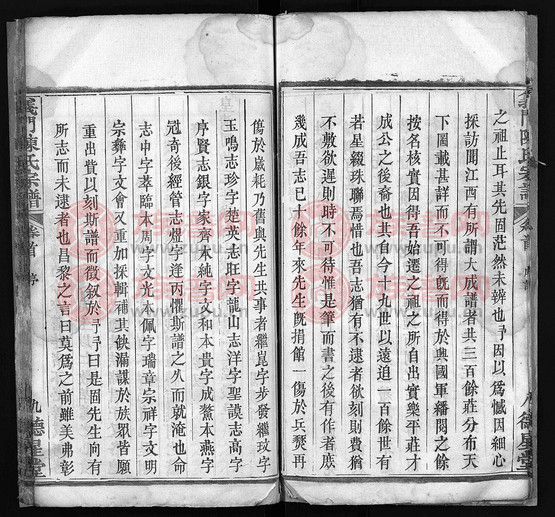 之祖止耳其先固茫然未辨也予因以為憾因細心
採訪聞江西有所謂大成譜者共三百餘莊分布天
下圖載甚詳而不可得既而得於興國軍繙閱之餘
按名核實因得吾始遷之祖之所自出實樂平莊才
成公之後裔也其自今十九世以遠迫一百餘世有
若星綴珠聯焉惜也吾志猶有不遂者欲刻則費
不敷欲遲則時不可待惟是筆而書之後有作者庶
幾成吾志已十餘年來先生既捐館一傷於兵燹再
義門陳氏宗譜 卷首 序 德星堂
傷於歲耗乃舊與先生共事者繼崑字步發繼玟字
玉鳴志珍字楚英志旺字龍山志洋字聖謨志高字
序賢志銀字家齊本純字文和本貴字成鰲本燕字
冠奇後經管志煜字達丙懼斯譜之久而就淹也命
志中字萃臨本周字文光本佩字瑞章宗祥字文明
宗彝字文會又重加採輯補其缺漏謀於族眾皆願
重出貲以刻斯譜而徵敘於予予曰是固先生向有
所志而未逮者也昌黎之言曰莫為之前雖美弗彰
義門陳氏宗譜 卷首 序 九 德星堂
族譜網
www.zupu.cn